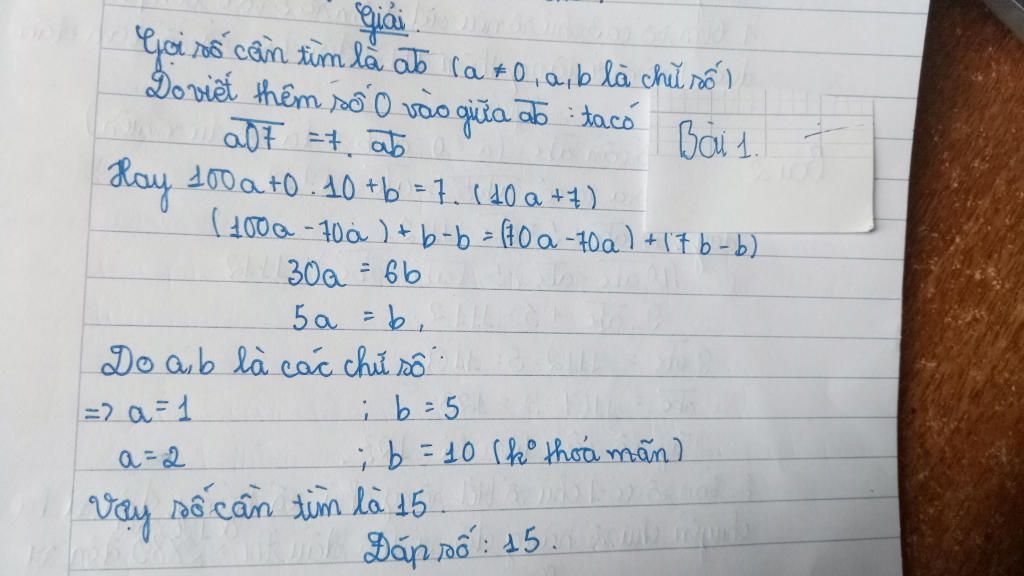 Giải.
Gọi số cần tìm là ab (a ≠ 0, a, b là chữ số)
Do viết thêm số 0 vào giữa ab : ta có
a07 = 7. ab
Bài 1.
Hay 100a + 0 . 10 + b = 7. (10a + 7)
(100a - 70a) + b - b = (70a - 70a) + (7b - b)
30a = 6b
5a = b,
Do a, b là các chữ số
=> a = 1 ; b = 5
a = 2 ; b = 10 (ko thoả mãn)
Vậy số cần tìm là 15.
Đáp số : 15.